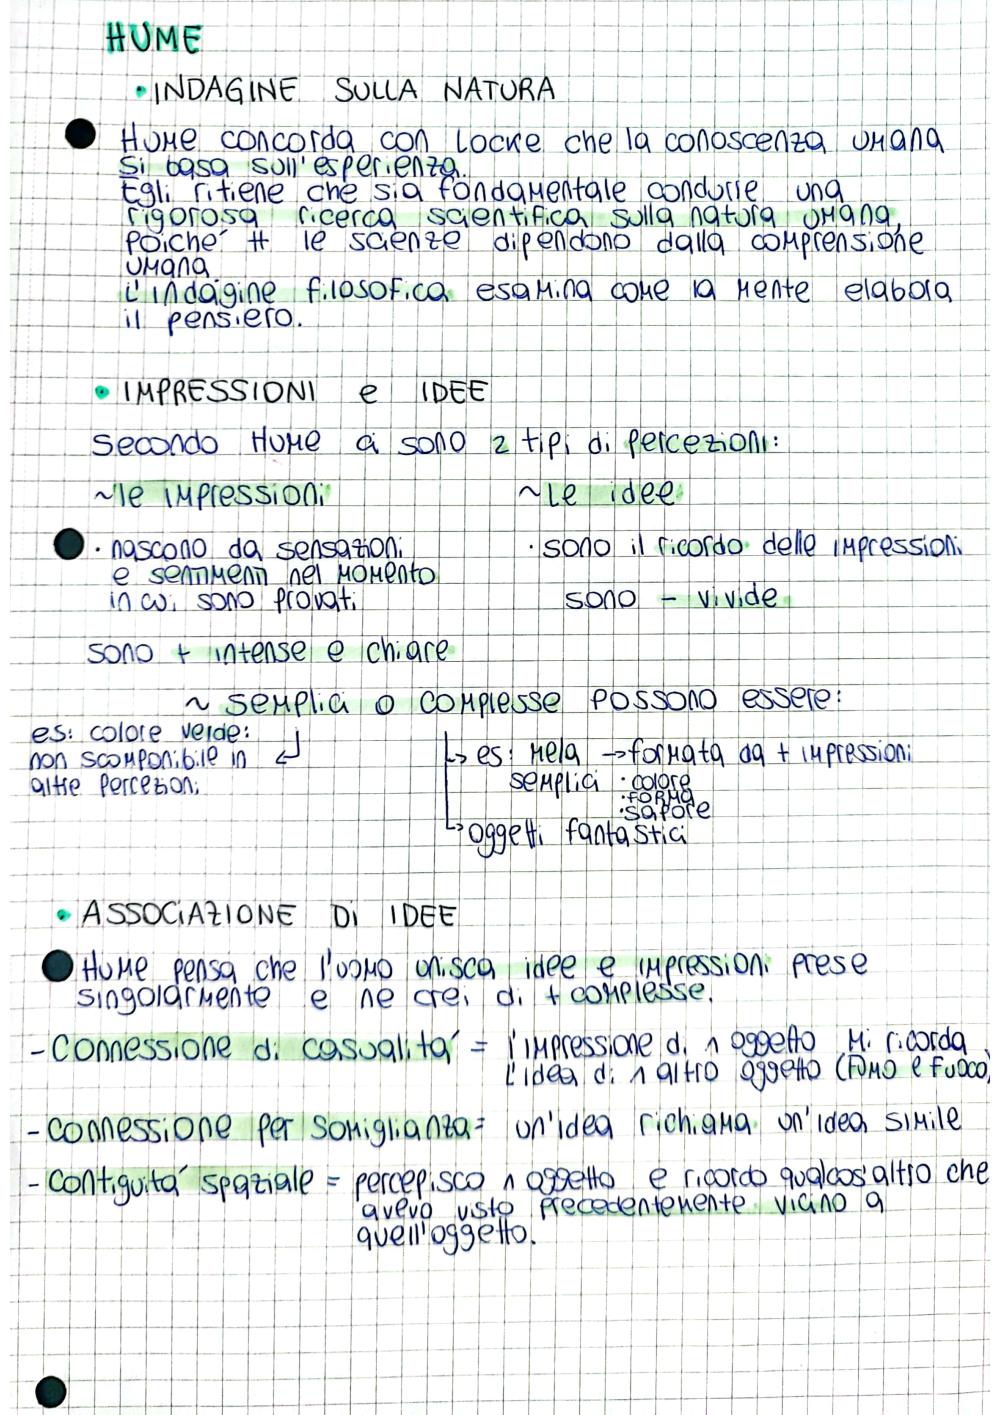 HUME
• INDAGINE SULLA NATURA
Hume concorda con Locke che la conoscenza umana
si basa sull'esperienza.
Egli ritiene che sia fondamentale condurre una
rigorosa ricerca scientifica sulla natura umana,
poiché tt le scienze dipendono dalla comprensione
umana
L'indagine filosofica esamina come la mente elabora
il pensiero.
• IMPRESSIONI e IDEE
Secondo Hume ci sono 2 tipi di percezioni:
~le impressioni ~le idee
· nascono da sensazioni · sono il ricordo delle impressioni
e sentimenti nel momento
in cui sono provati sono - vivide
sono + intense e chiare
~ semplici o complesse possono essere:
es: colore verde:
non scomponibile in ↵ ↳ es: mela → formata da + impressioni
altre percezioni semplici · colore
· forma
· sapore
↳ oggetti fantastici
• ASSOCIAZIONE Di IDEE
Hume pensa che l'uomo unisca idee e impressioni prese
singolarmente e ne crei di + complesse.
- Connessione di casualità = l'impressione di 1 oggetto mi ricorda
l'idea di 1 altro oggetto (fumo e fuoco)
- connessione per somiglianza = un'idea richiama un'idea simile
- contiguità spaziale = percepisco 1 oggetto e ricordo qualcos'altro che
avevo visto precedentemente vicino a
quell'oggetto.